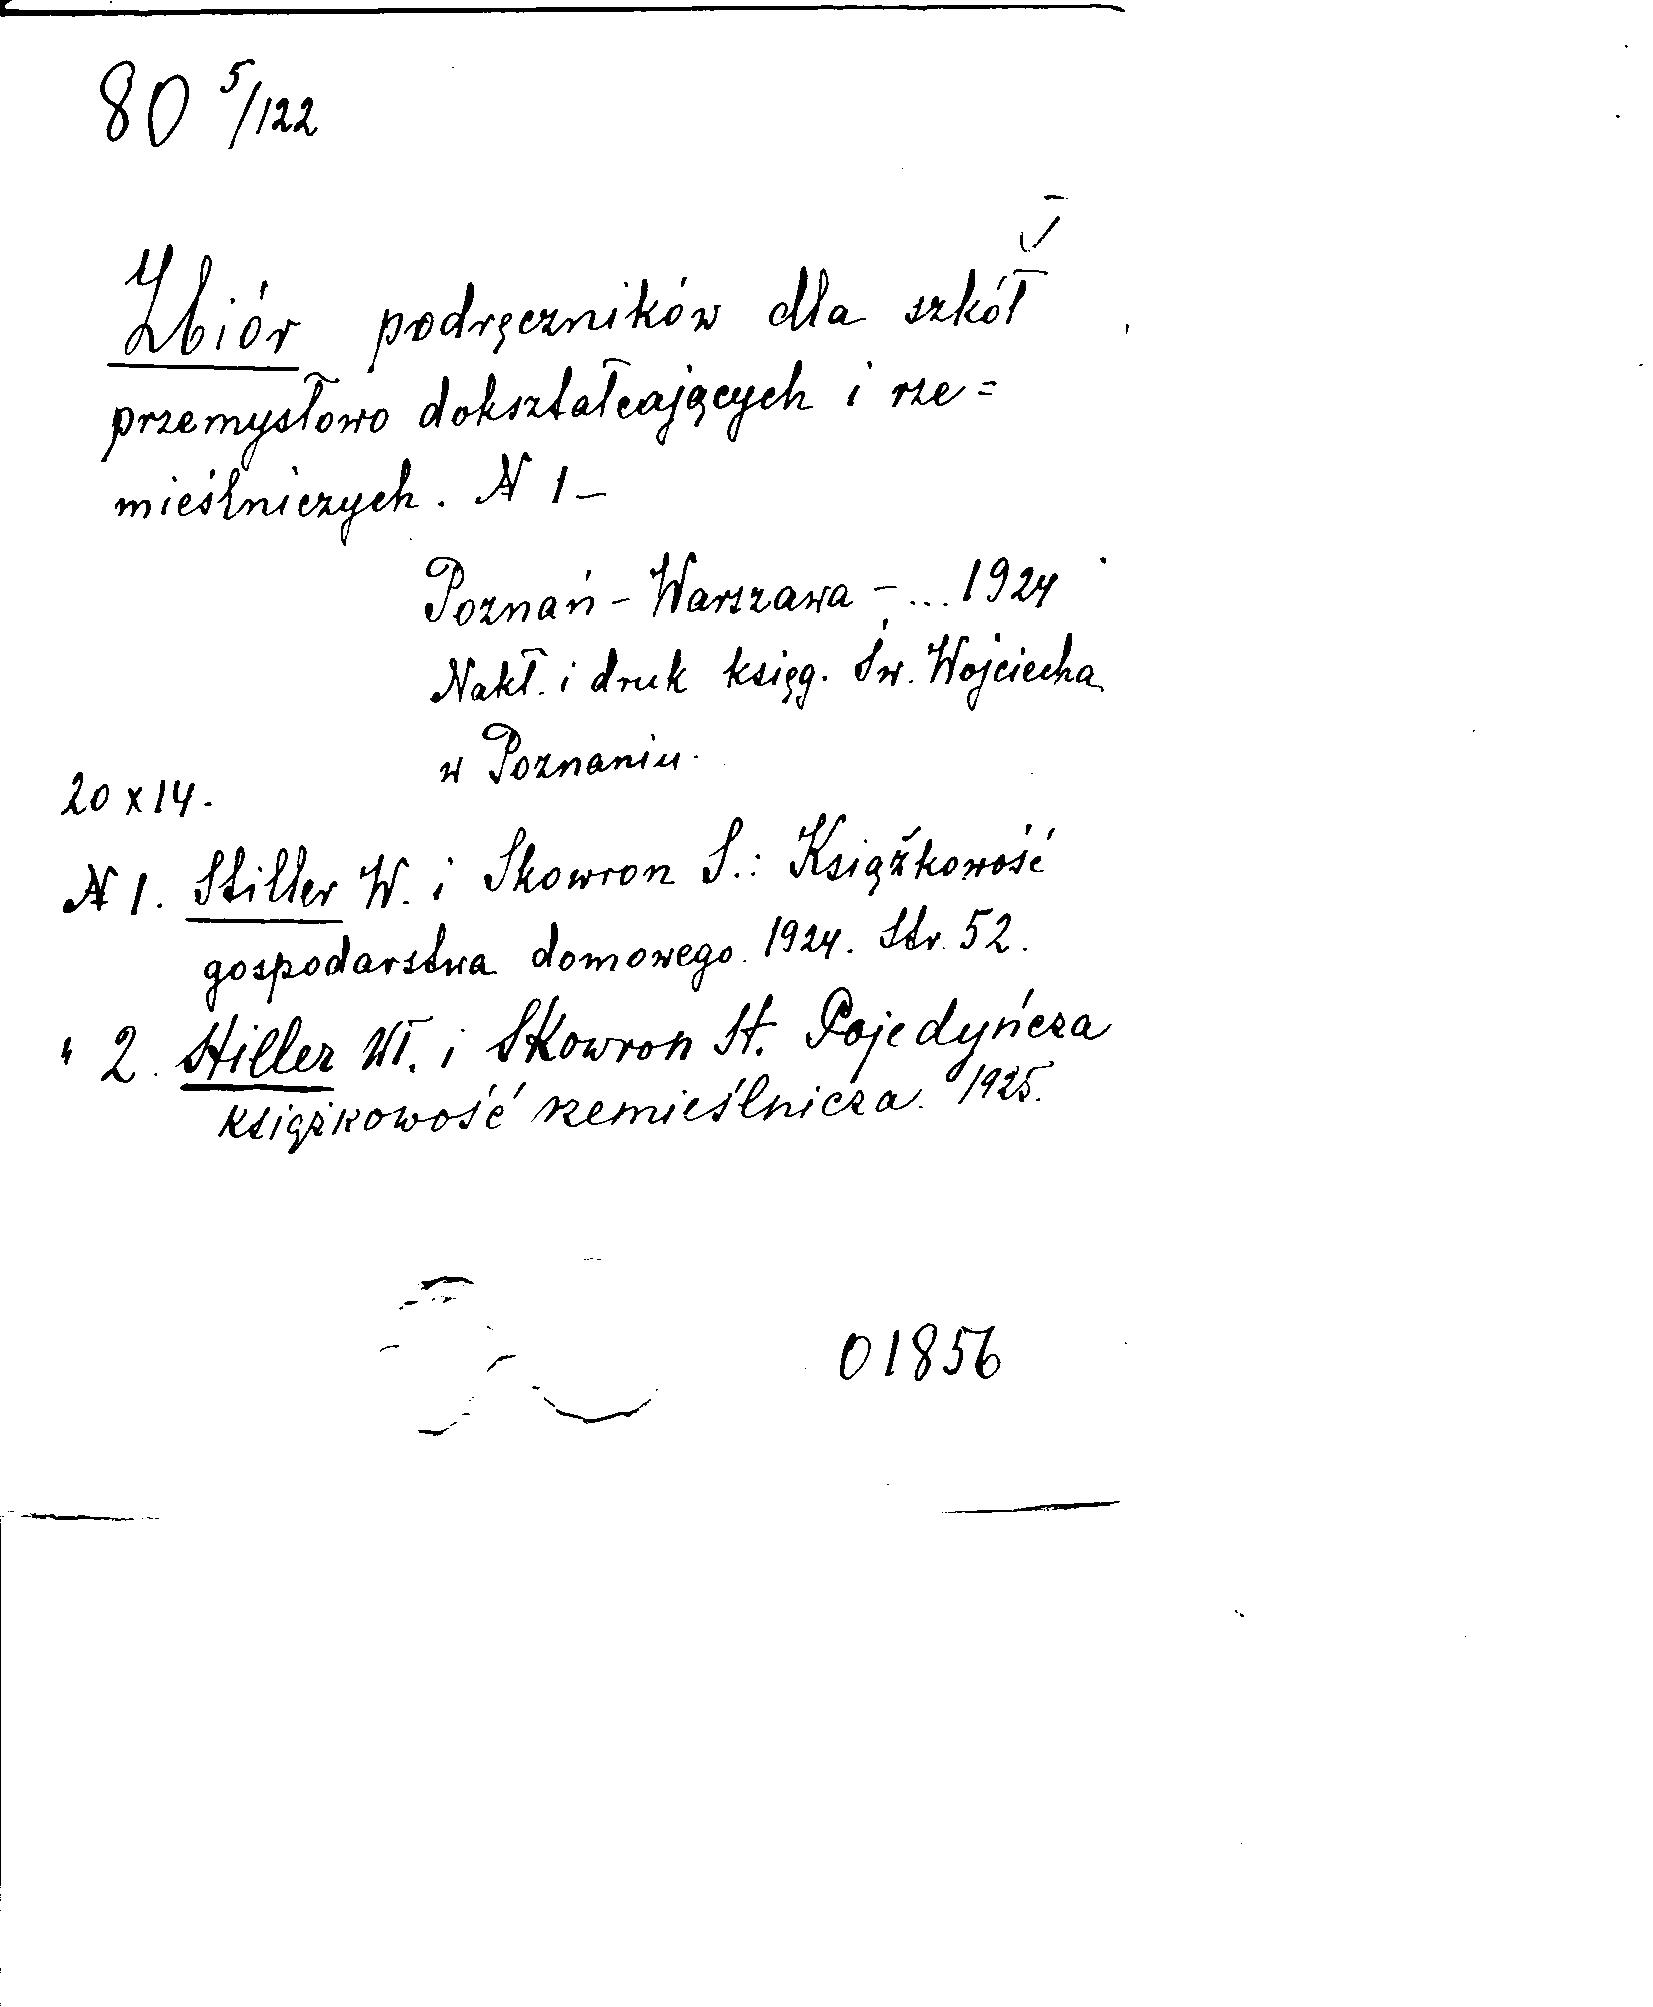 80 5/122
Zbiór podręczników dla szkół
przemysłowo dokształcających i rze=
mieślniczych. N 1 –
Poznań – Warszawa – ... 1924
Nakł. i druk księg. Św. Wojciecha
w Poznaniu.
20 x 14.
N 1. Stiller W. i Skowron S.: Książkowość
gospodarstwa domowego. 1924. Str. 52.
" 2. Stiller Wł. i Skowron St. Pojedyńcza
książkowość rzemieślnicza. 1925.
01856